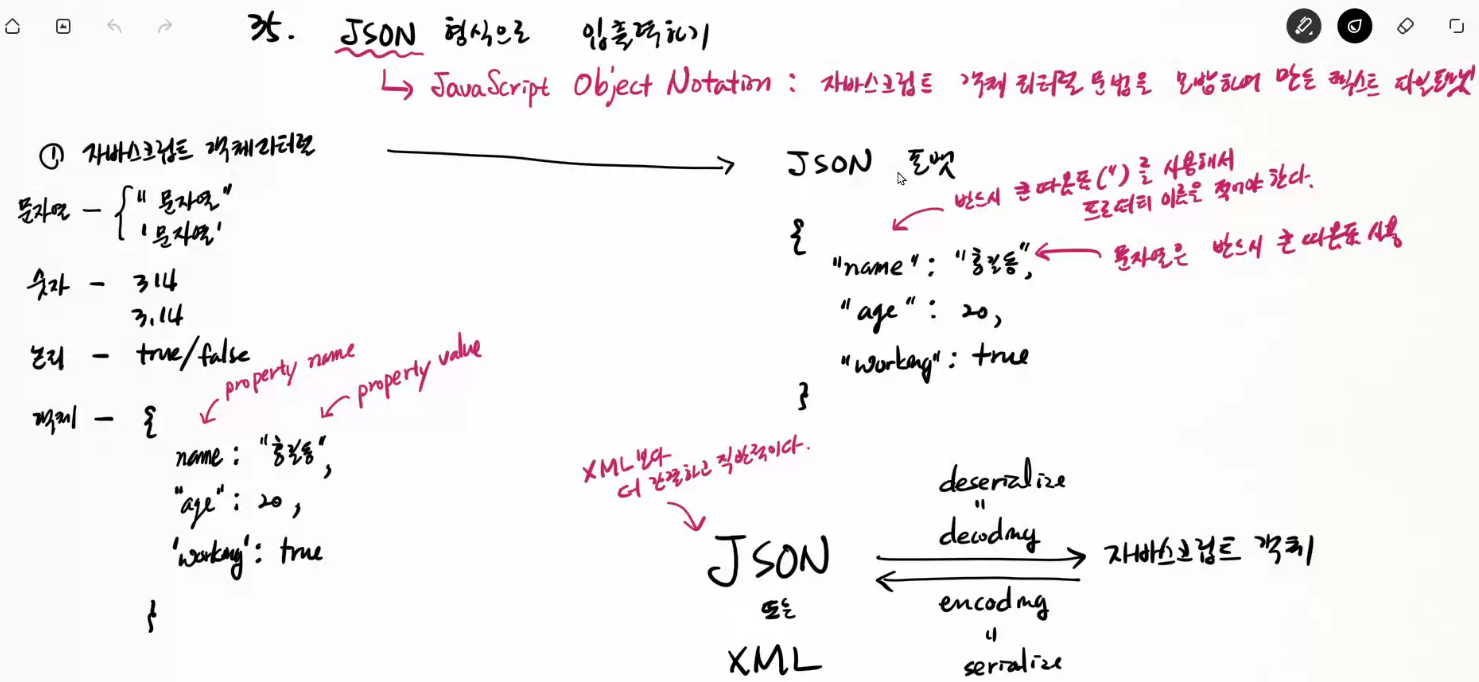 35. JSON 형식으로 입출력하기
↳ JavaScript Object Notation : 자바스크립트 객체 리터럴 문법을 모방하여 만든 텍스트 파일포맷
① 자바스크립트 객체리터럴
문자열 - { "문자열"
'문자열'
숫자 - 314
3.14
논리 - true/false
객체 - {
property name
property value
name : "홍길동",
"age" : 20,
'working' : true
}
JSON 포맷
반드시 큰 따옴표(")를 사용해서
프로퍼티 이름을 적어야 한다.
{
"name" : "홍길동",
문자열은 반드시 큰 따옴표 사용
"age" : 20,
"working" : true
}
XML보다
더 간결하고 직관적이다.
JSON
또는
XML
deserialize
=
decoding
자바스크립트 객체
encoding
=
serialize